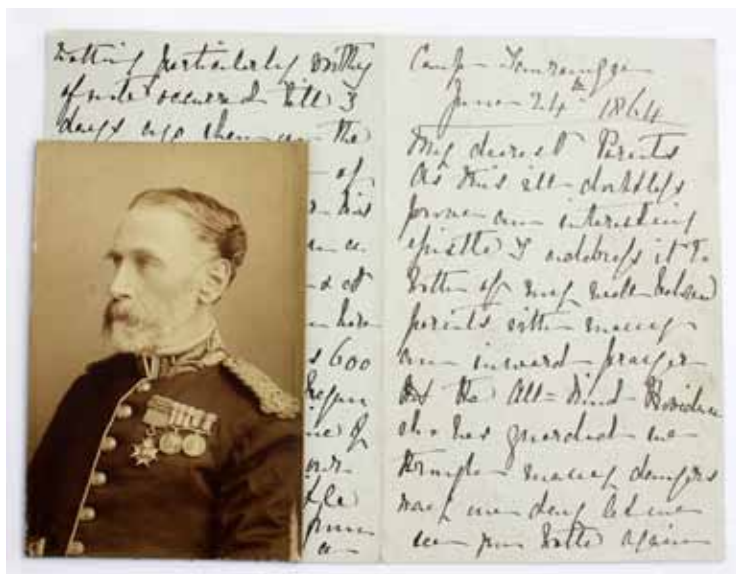 Nothing particularly worthy
of note occurred till 3
days ago when the
of
his
at
600
of
a
Camp Tauranga
June 24th 1864
My dearest Parents
As this will doubtless
prove an interesting
epistle I address it to
both of my well beloved
parents with many
an inward prayer
that the All=Kind Providence
who has guarded me
through many dangers
may one day let me
see you both again